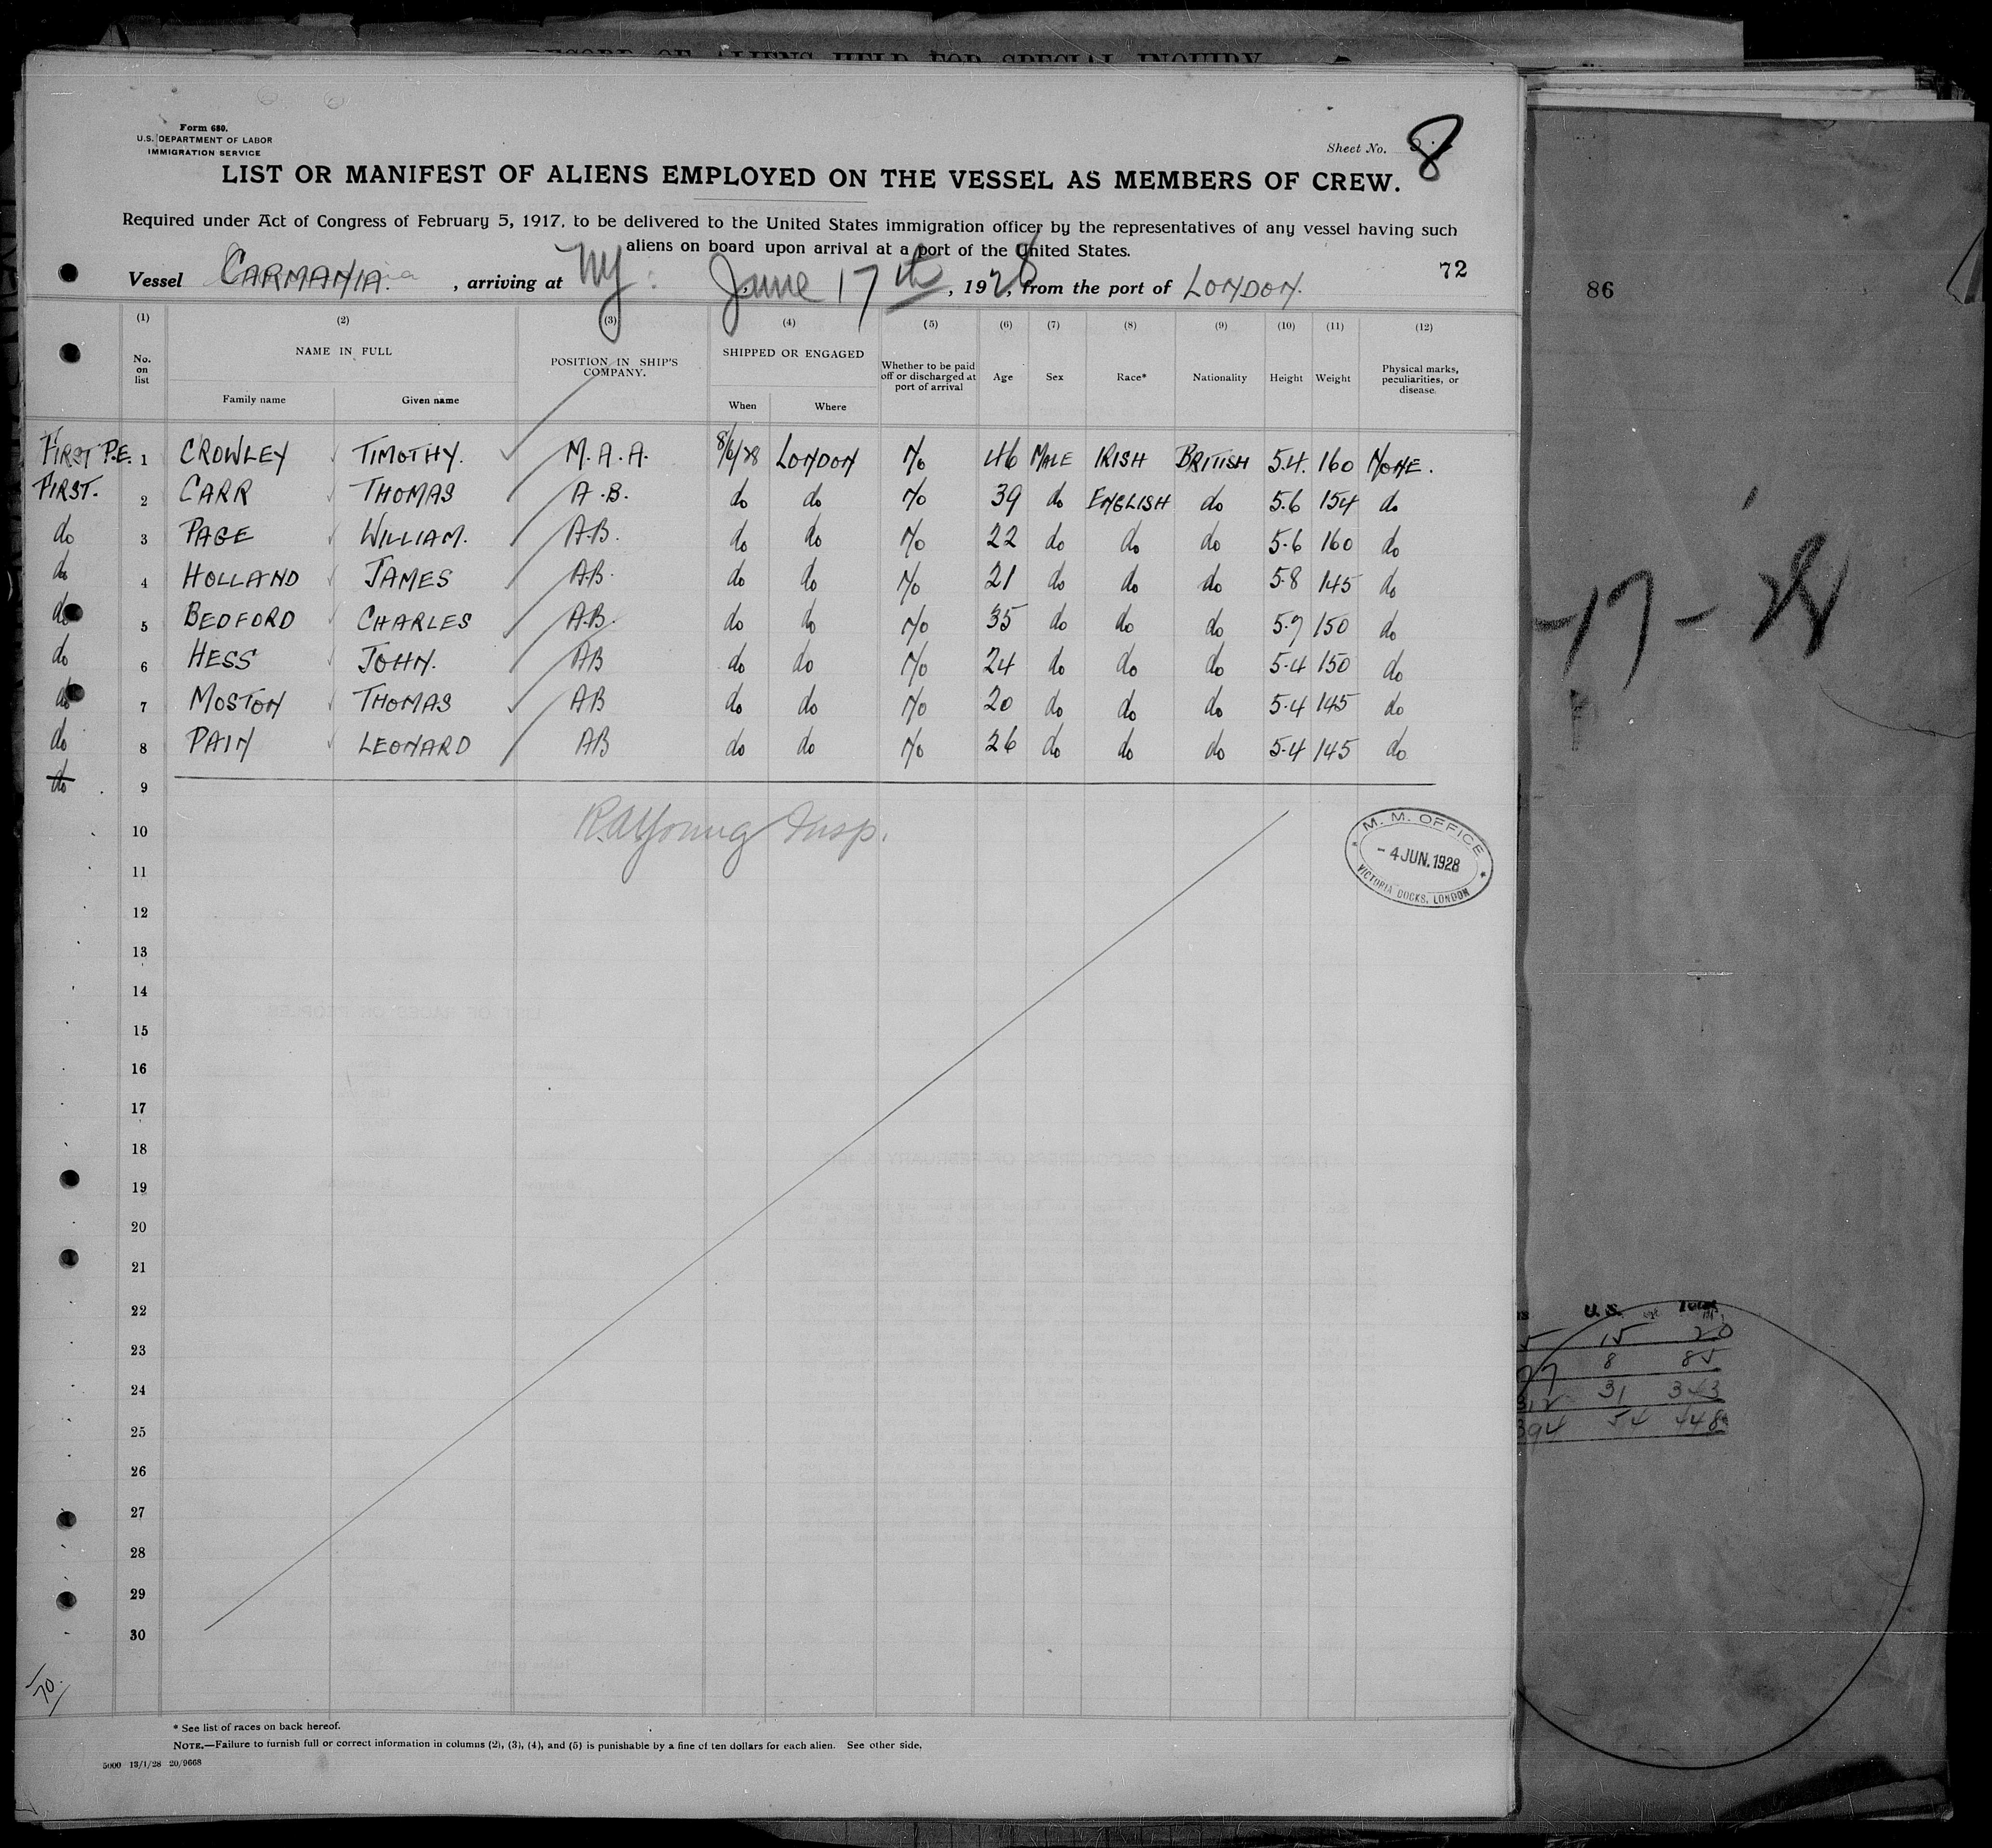 RECORD OF ALIENS HELD FOR SPECIAL INQUIRY
Form 680.
U.S. DEPARTMENT OF LABOR
IMMIGRATION SERVICE
Sheet No. 8
LIST OR MANIFEST OF ALIENS EMPLOYED ON THE VESSEL AS MEMBERS OF CREW.
Required under Act of Congress of February 5, 1917, to be delivered to the United States immigration officer by the representatives of any vessel having such
aliens on board upon arrival at a port of the United States.
72
Vessel CARMANIA. , arriving at NY: June 17th , 1928, from the port of LONDON.
(1) (2) (3) (4) (5) (6) (7) (8) (9) (10) (11) (12)
No. on list NAME IN FULL POSITION IN SHIP'S COMPANY. SHIPPED OR ENGAGED Whether to be paid off or discharged at port of arrival Age Sex Race* Nationality Height Weight Physical marks, peculiarities, or disease.
Family name Given name When Where
FIRST P.E. 1 CROWLEY TIMOTHY. M.A.A. 8/6/28 LONDON No 46 MALE IRISH BRITISH 5.4. 160 NONE.
FIRST. 2 CARR THOMAS A.B. do do No 39 do ENGLISH do 5.6 154 do
do 3 PAGE WILLIAM. A.B. do do No 22 do do do 5.6 160 do
do 4 HOLLAND JAMES A.B. do do No 21 do do do 5.8 145 do
do 5 BEDFORD CHARLES A.B. do do No 35 do do do 5.7 150 do
do 6 HESS JOHN. AB do do No 24 do do do 5.4 150 do
do 7 MOSTON THOMAS AB do do No 20 do do do 5.4 145 do
do 8 PAIN LEONARD AB do do No 26 do do do 5.4 145 do
do 9
10
R.A. Young Insp.
M. M. OFFICE
- 4 JUN. 1928
VICTORIA DOCKS, LONDON
11
12
13
14
15
16
17
18
19
20
21
22
23
24
25
26
27
28
29
30
70.
* See list of races on back hereof.
NOTE.—Failure to furnish full or correct information in columns (2), (3), (4), and (5) is punishable by a fine of ten dollars for each alien. See other side.
5000 13/1/28 20/9668
86
-17-28
U.S. Total
5 15 20
77 8 85
312 31 343
394 54 448